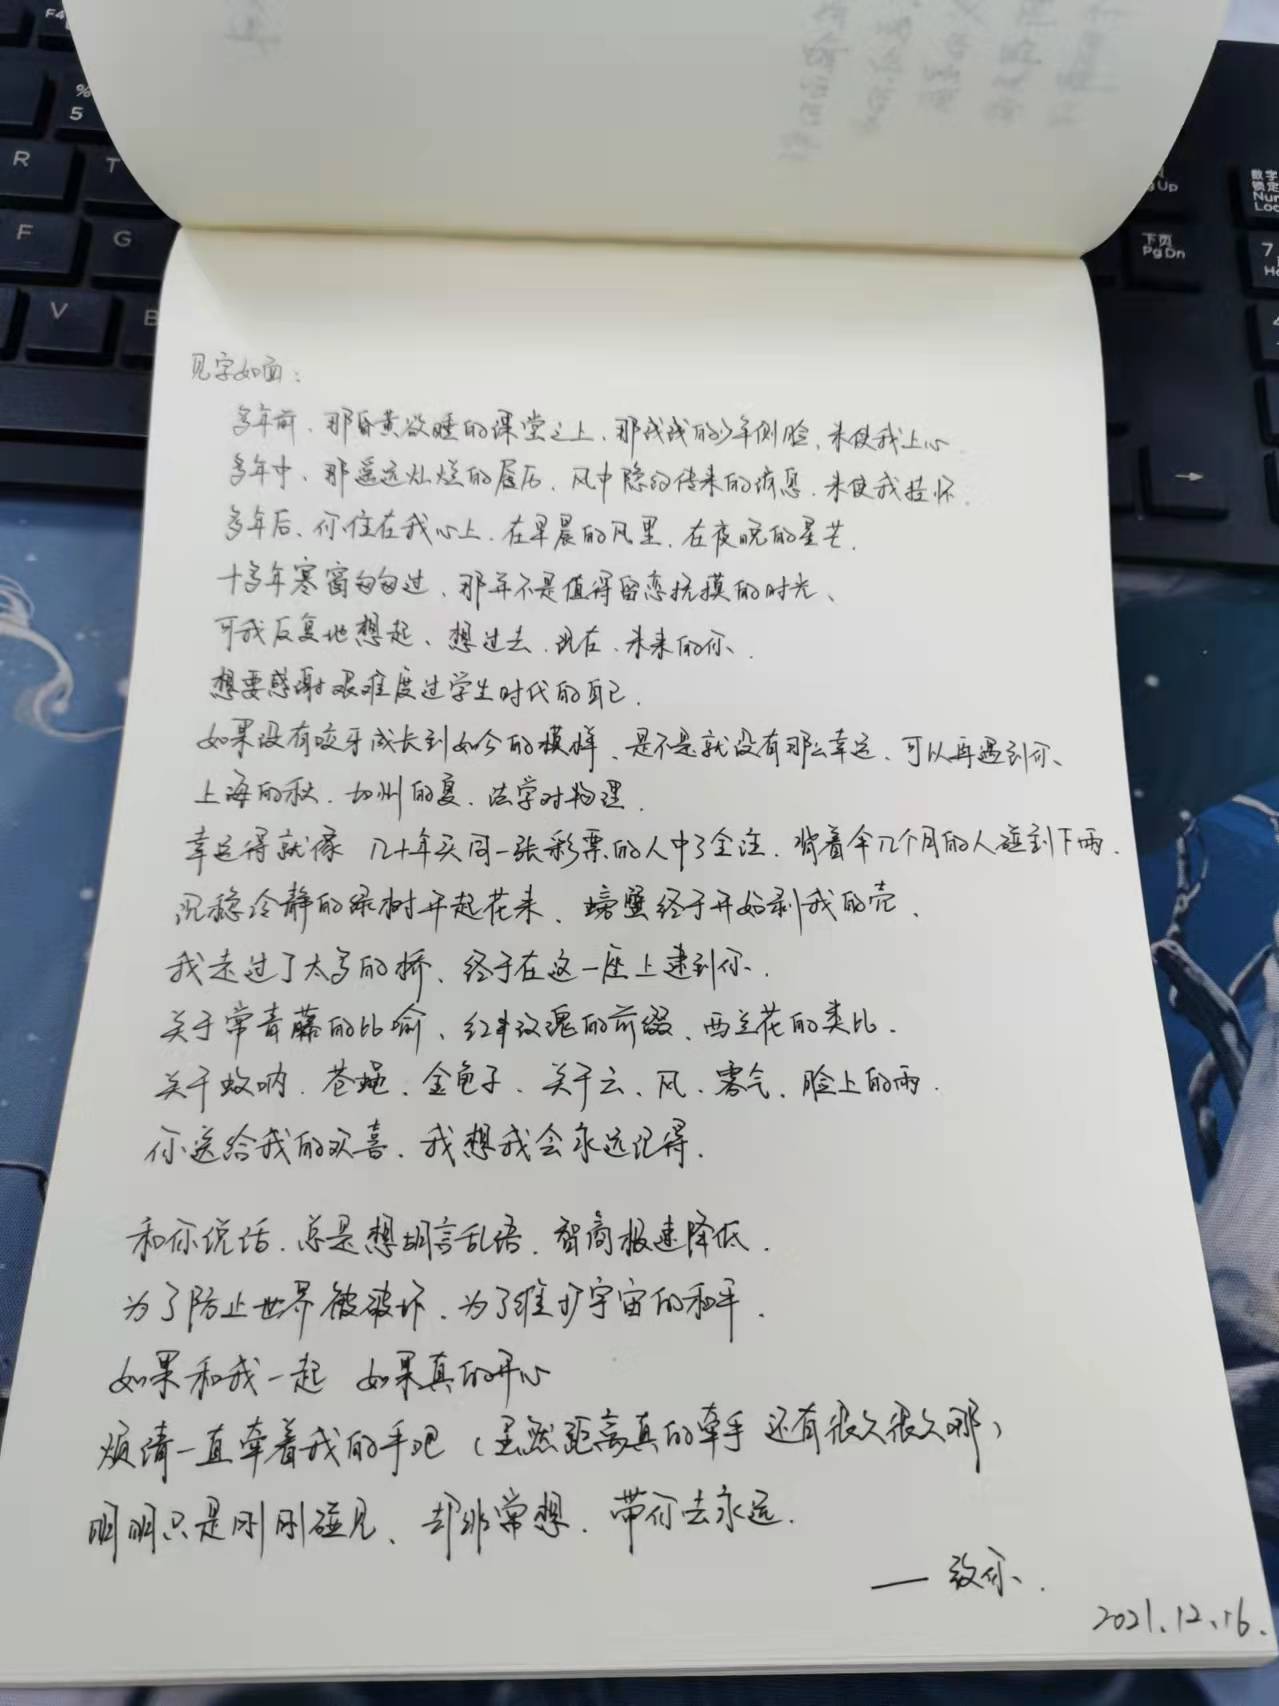 见字如面：
多年前、那昏黄欲睡的课堂之上、那浅浅的少年侧脸、未使我上心
多年中、那遥远灿烂的履历、风中隐约传来的消息、未使我挂怀.
多年后、你住在我心上、在早晨的风里、在夜晚的星芒.
十多年寒窗匆匆过、那并不是值得留恋抚摸的时光、
可我反复地想起、想过去、现在、未来的你、
想要感谢艰难度过学生时代的自己.
如果没有咬牙成长到如今的模样、是不是就没有那么幸运、可以再遇到你、
上海的秋、加州的夏、法学对物理.
幸运得就像 几十年买同一张彩票的人中了全注、背着伞几个月的人碰到下雨.
沉稳冷静的绿树开起花来、螃蟹终于开始剥我的壳、
我走过了太多的桥、终于在这一座上逮到你、.
关于常青藤的比喻、红玫瑰的前缀、西兰花的类比.
关于蚊呐、苍蝇、金龟子、关于云、风、雾气、脸上的雨.
你送给我的欢喜、我想我会永远记得.
和你说话、总是想胡言乱语、智商极速降低.
为了防止世界被破坏、为了维护宇宙的和平.
如果和我一起 如果真的开心
烦请一直牵着我的手吧（虽然距离真的牵手 还有很久很久哪）
明明只是刚刚碰见、却非常想、带你去永远.
—— 致你、.
2021.12.16.
%
5
R
T
F
G
V
B
F4
数字
锁定
下页
Pg Dn
7
→